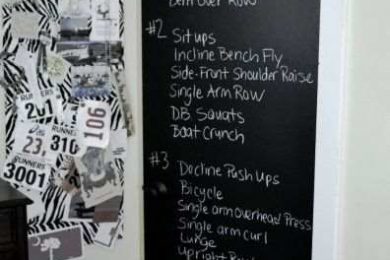 Bent Over Row
#2 Sit ups
Incline Bench Fly
Side-Front Shoulder Raise
Single Arm Row
DB Squats
Boat Crunch
#3 Decline Push Ups
Bicycle
Single arm overhead Press
Single arm curl
Lunge
Upright
RUNNERS
201
106
23
RUNNERS
310
RUNNERS
3001